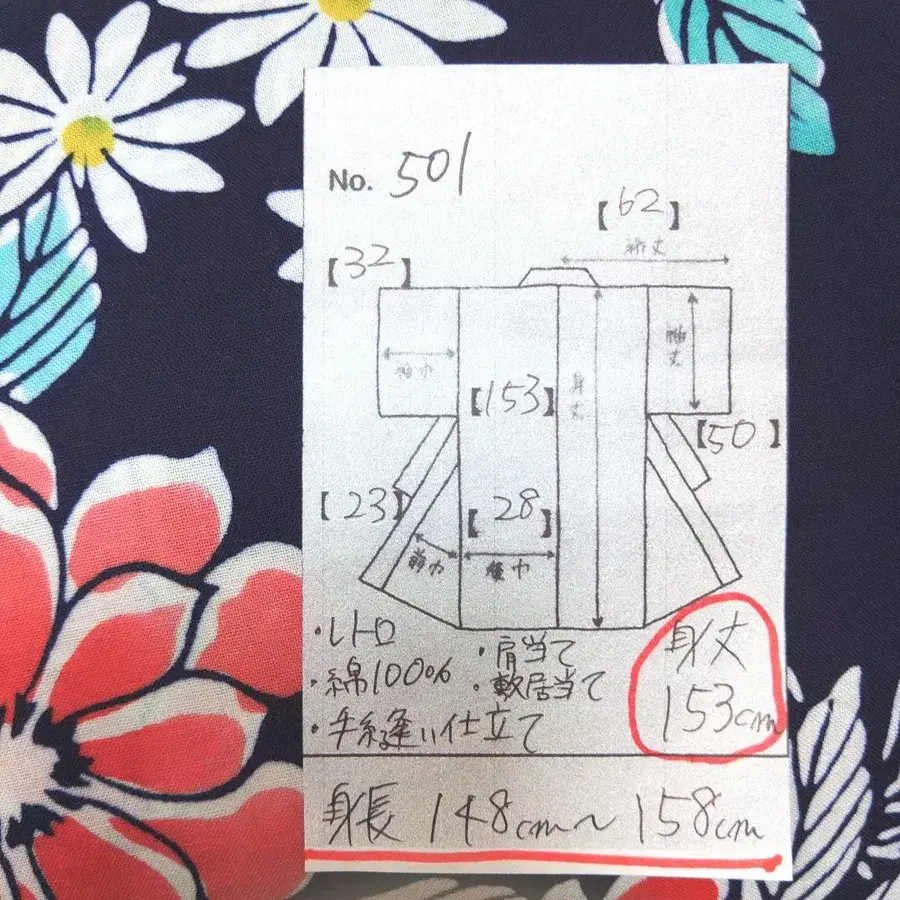 No. 501
【62】
裄丈
【32】
袖巾
袖丈
【153】
身丈
【50】
【23】
【28】
前巾
後巾
・レトロ
・綿100%
・手縫い仕立て
・肩当て
・敷居当て
身丈
153cm
身長 148cm~158cm